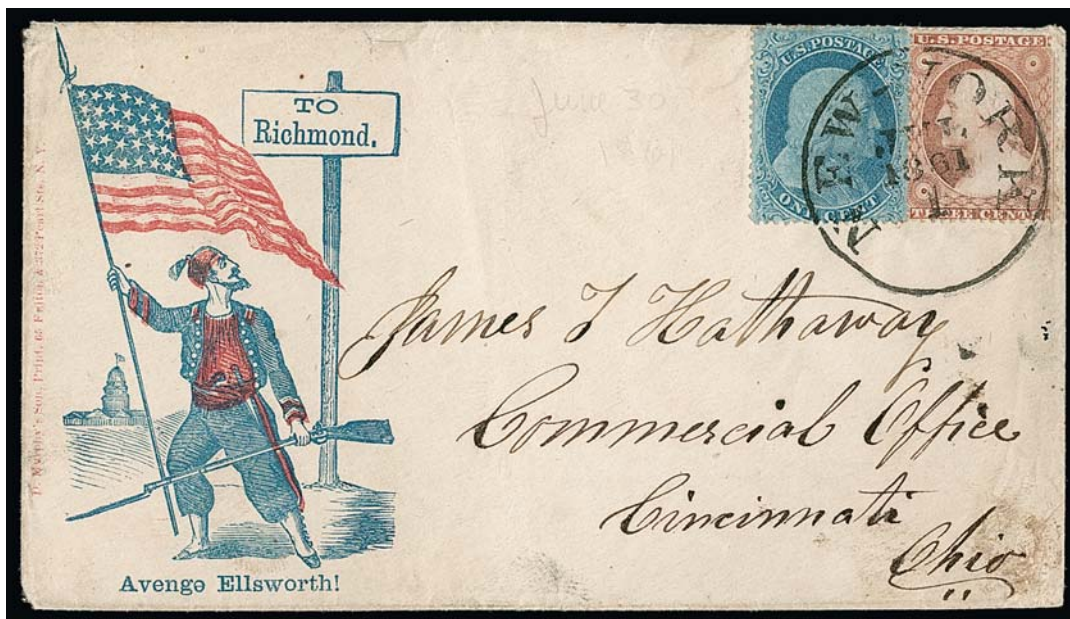 TO
Richmond.
Avenge Ellsworth!
U.S. POSTAGE
ONE CENT
U.S. POSTAGE
THREE CENTS
NEW YORK
1861
James T Hathaway
Commercial Office
Cincinnati
Ohio
June 30
Son, Print. 65 Fulton & 372 Pearl Sts. N. Y.